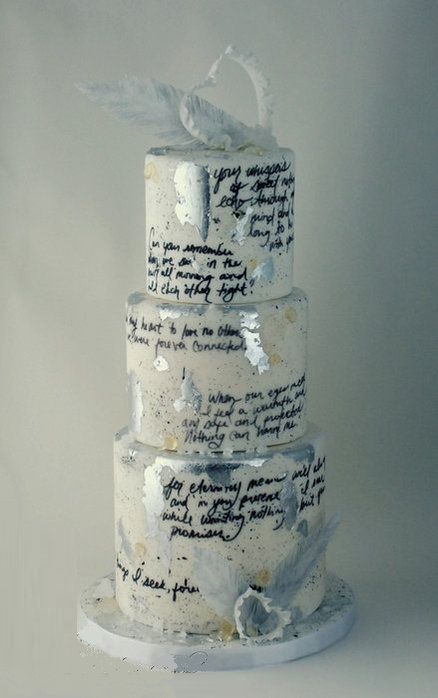 your whispers
of sweet
echo through
mind and
long to
with you
Can you remember
in the
all morning and
each other tight"
heart to love no other
were forever connected.
When our eyes meet
I feel a warmth and
and safe and protected
Nothing can harm me.
for eternity means
and in your presence
while wanting nothing but you
promises.
I seek, fore